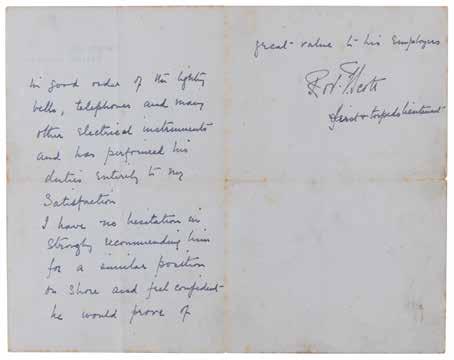 in good order of the lighting
bells, telephones and many
other Electrical instruments
and has performed his
duties Entirely to my
Satisfaction
I have no hesitation in
Strongly recommending him
for a similar position
on Shore and feel confident
he would prove of
great value to his Employers
Robt F Scott
Lieut & torpedo lieutenant